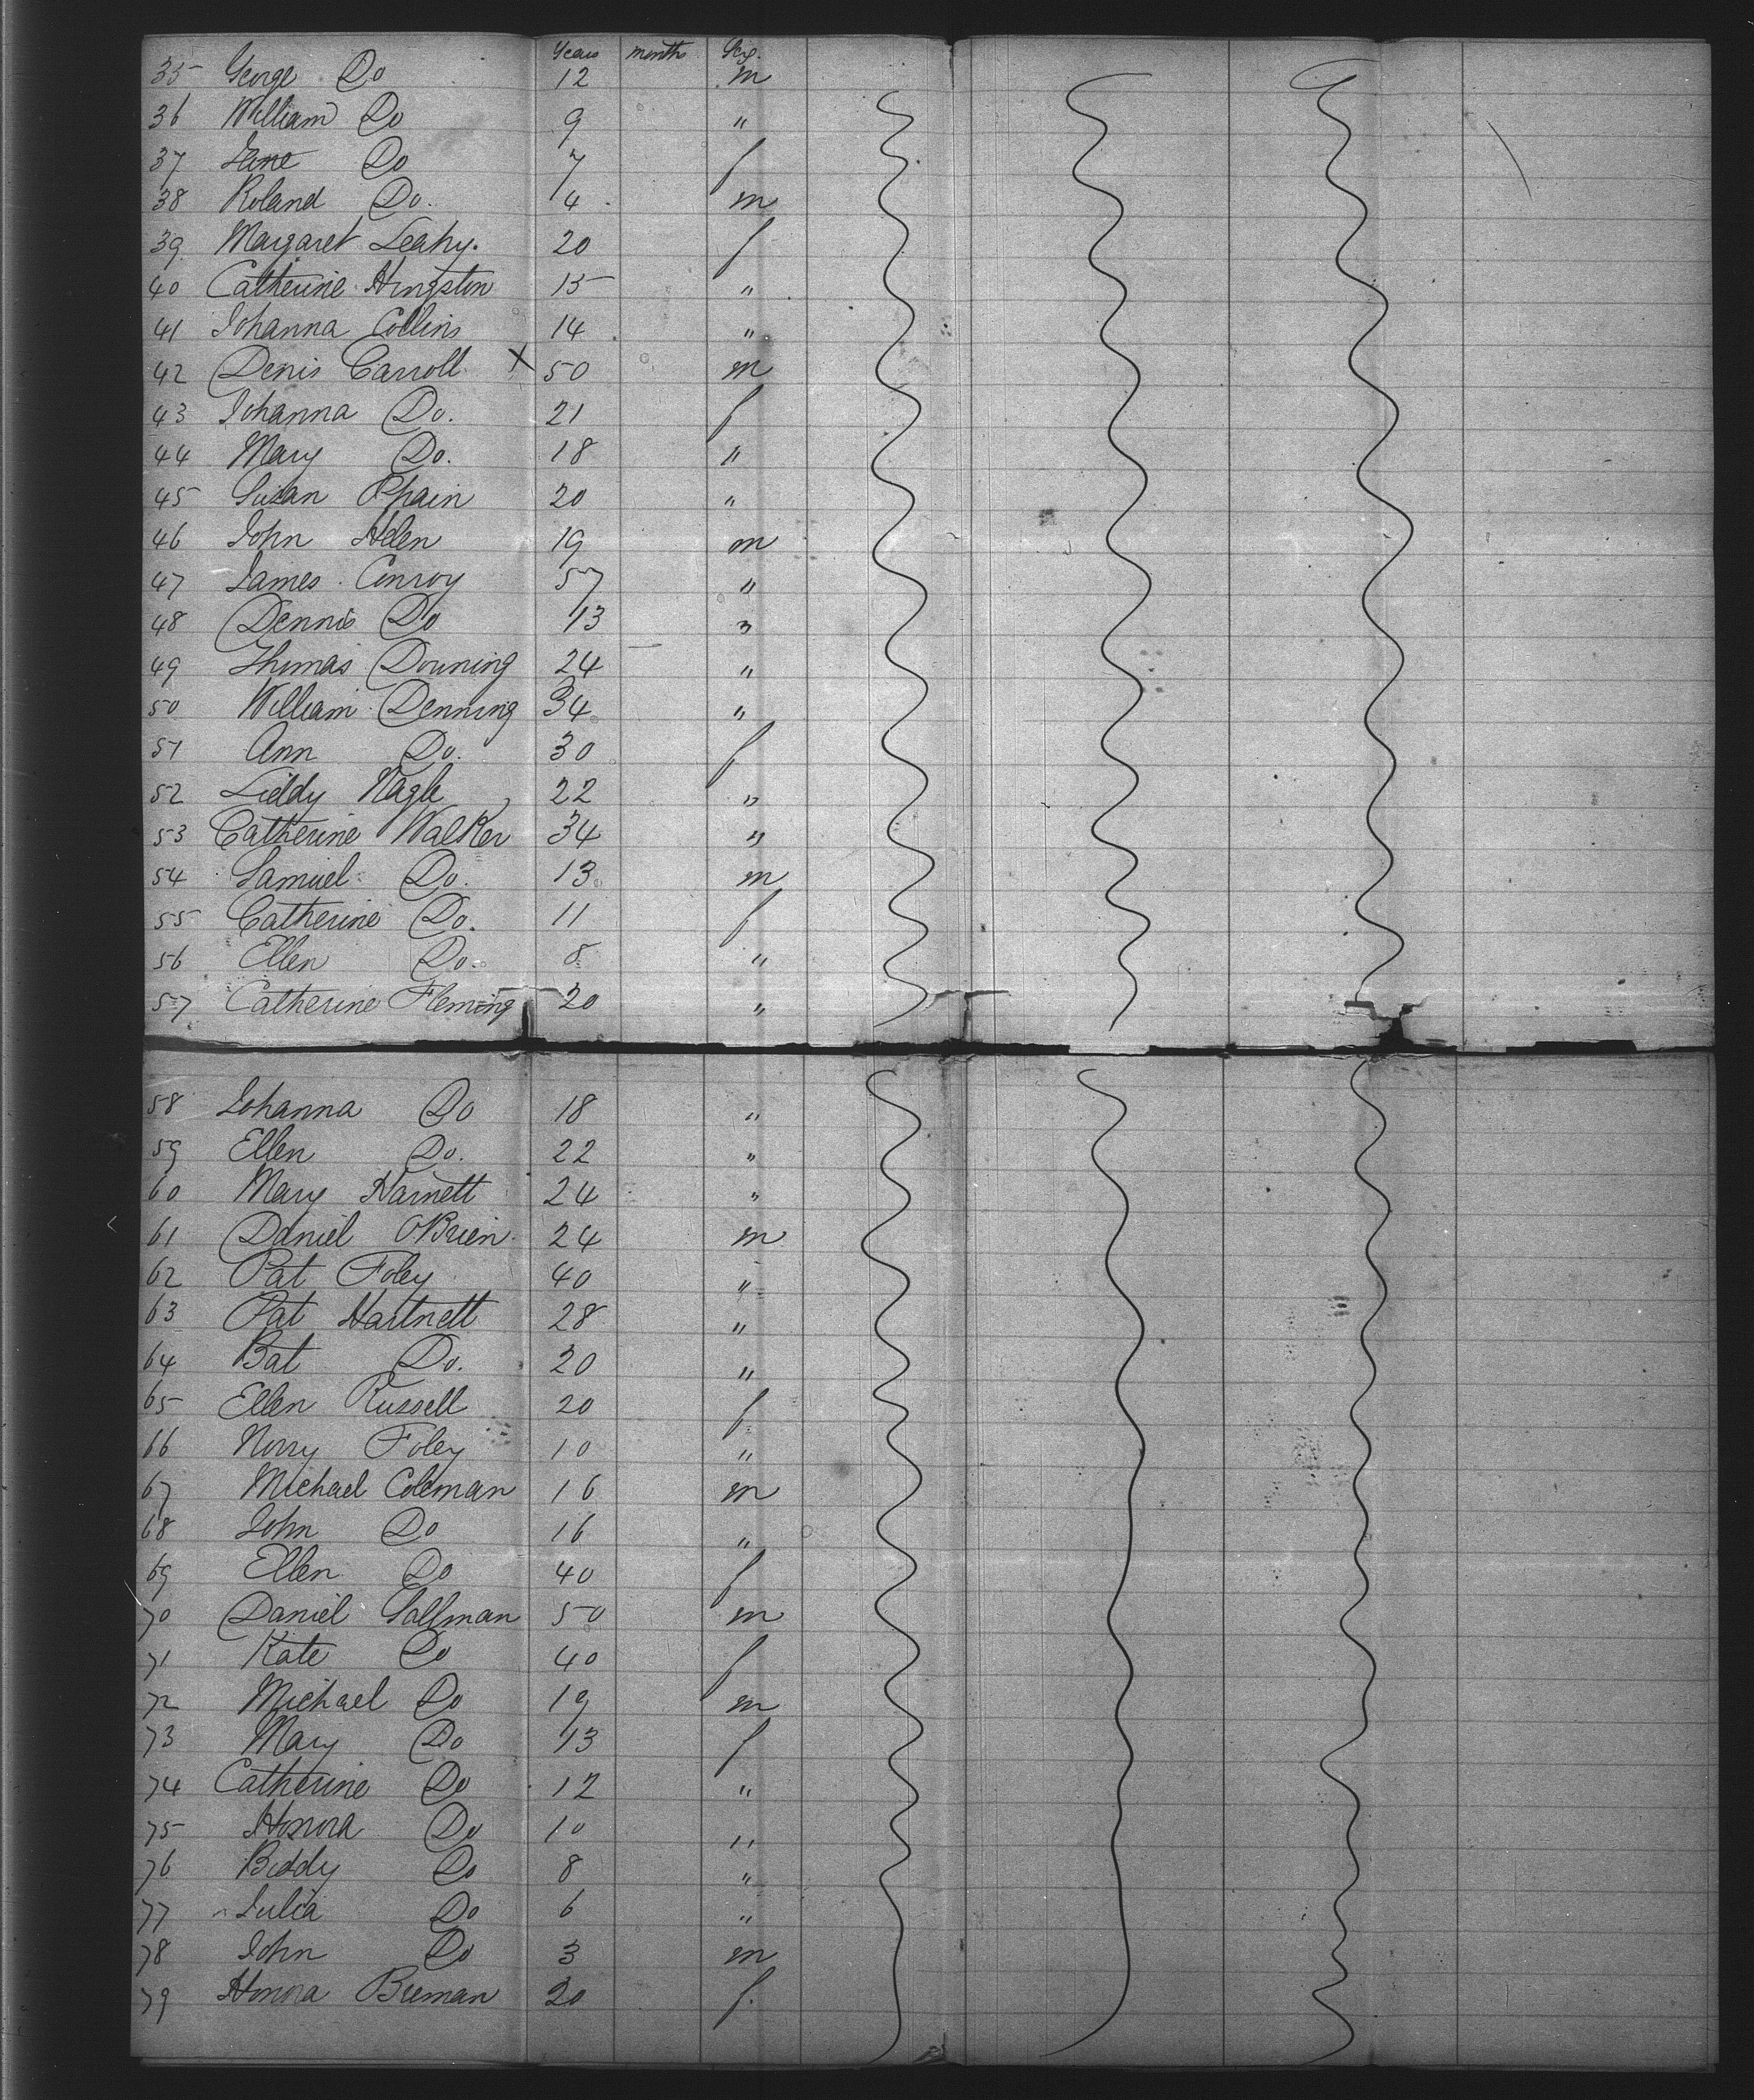 Years months Sex
35 George Do 12 m
36 William Do 9 "
37 Jane Do 7 f
38 Roland Do. 4 m
39 Margaret Leahy. 20 f
40 Catherine Hingston 15 "
41 Johanna Collins 14 "
42 Denis Carroll X 50 m
43 Johanna Do. 21 f
44 Mary Do. 18 "
45 Suzan 20 "
46 John Helen 19 m
47 James Conroy 57 "
48 Dennis Do 13 "
49 Thomas Douning 24 "
50 William Denning 34 "
51 Ann Do. 30 f
52 Liddy Nagle 22 "
53 Catherine Walker 34 "
54 Samuel Do. 13 m
55 Catherine Do. 11 f
56 Ellen Do. 8 "
57 Catherine Fleming 20 "
58 Johanna Do 18 "
59 Ellen Do. 22 "
60 Mary Harnett 24 "
61 Daniel OBrien 24 m
62 Pat Foley 40 "
63 Pat Hartnett 28 "
64 Bat Do. 20 "
65 Ellen Russell 20 f
66 Norry Foley 10 "
67 Michael Coleman 16 m
68 John Do 16 "
69 Ellen Do 40 f
70 Daniel Sallman 50 m
71 Kate Do 40 f
72 Michael Do 19 m
73 Mary Do 13 f
74 Catherine Do 12 "
75 Honora Do 10 "
76 Biddy Do 8 "
77 Julia Do 6 "
78 John Do 3 m
79 Honora Breman 20 f.